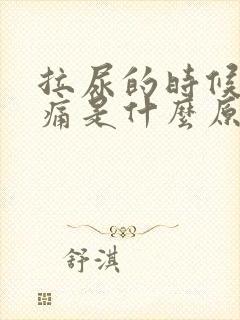 拉尿的時候
痛是什麼原
舒淇